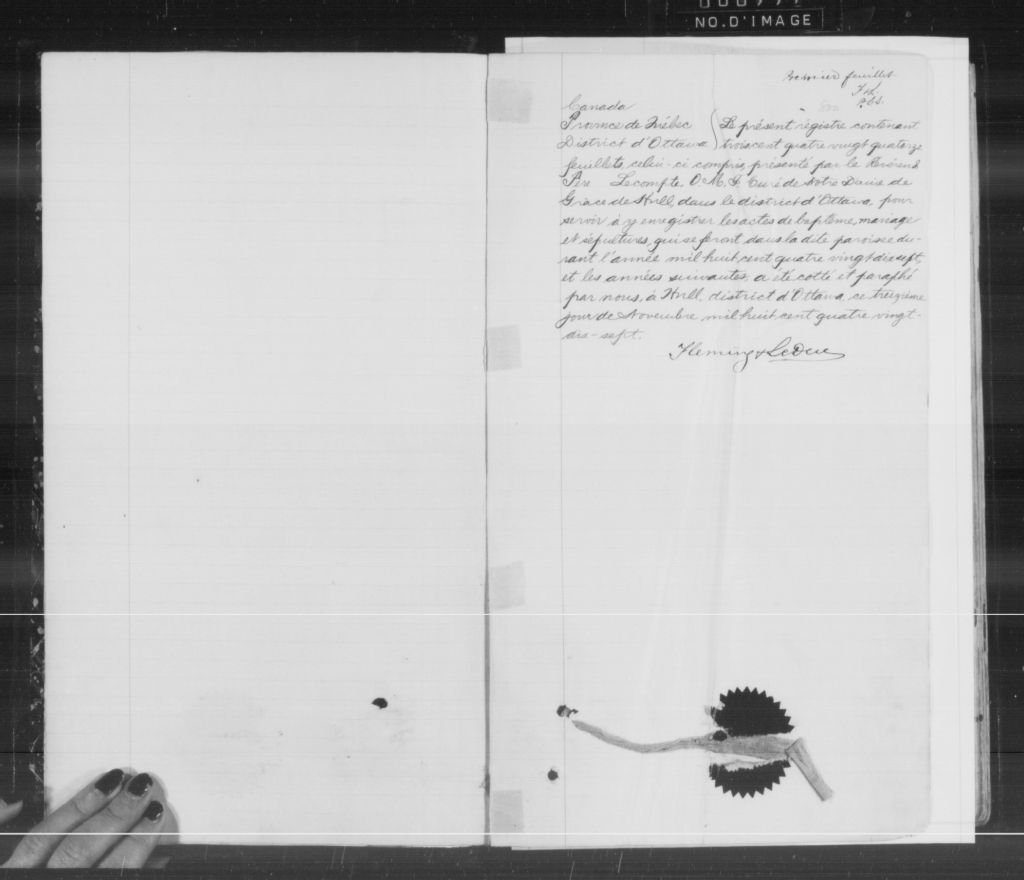 NO. D'IMAGE
Premier feuillet
Canada
Province de Québec
District d'Ottawa
Le présent régistre contenant
troiscent quatre vingt quatorze
feuillets, celui-ci compris, présenté par le Révérend
Père Lecompte, O.M.I. Curé de Notre Dame de
Grâce de Hull, dans le district d'Ottawa, pour
servir à y enregistrer les actes de baptême, mariage
et sépultures, qui se feront dans la dite paroisse du-
rant l'année mil huit cent quatre vingt dix sept,
et les années suivantes, a été cotté et paraphé
par nous, à Hull, district d'Ottawa, ce treizième
jour de Novembre mil huit cent quatre vingt-
dix-sept.
Fleming & LeDuc